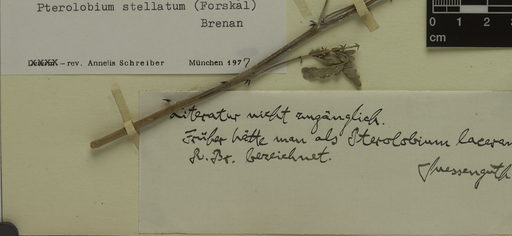 Pterolobium stellatum (Forskal)
Brenan
0 1 2 3
cm
rev. Annelis Schreiber München 1977
Literatur nicht zugänglich.
Früher hätte man als Pterolobium laceran
R. Br. bezeichnet.
Suessenguth